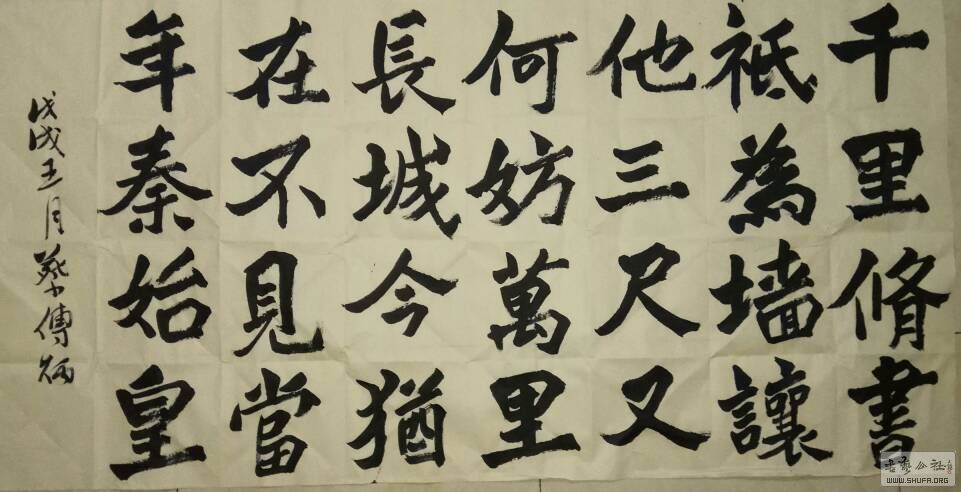 千里脩書
祇為墙讓
他三尺又
何妨萬里
長城今猶
在不見當
年秦始皇
戊戌五月蔡傳炳
書藝公社
WWW.SHUFA.ORG